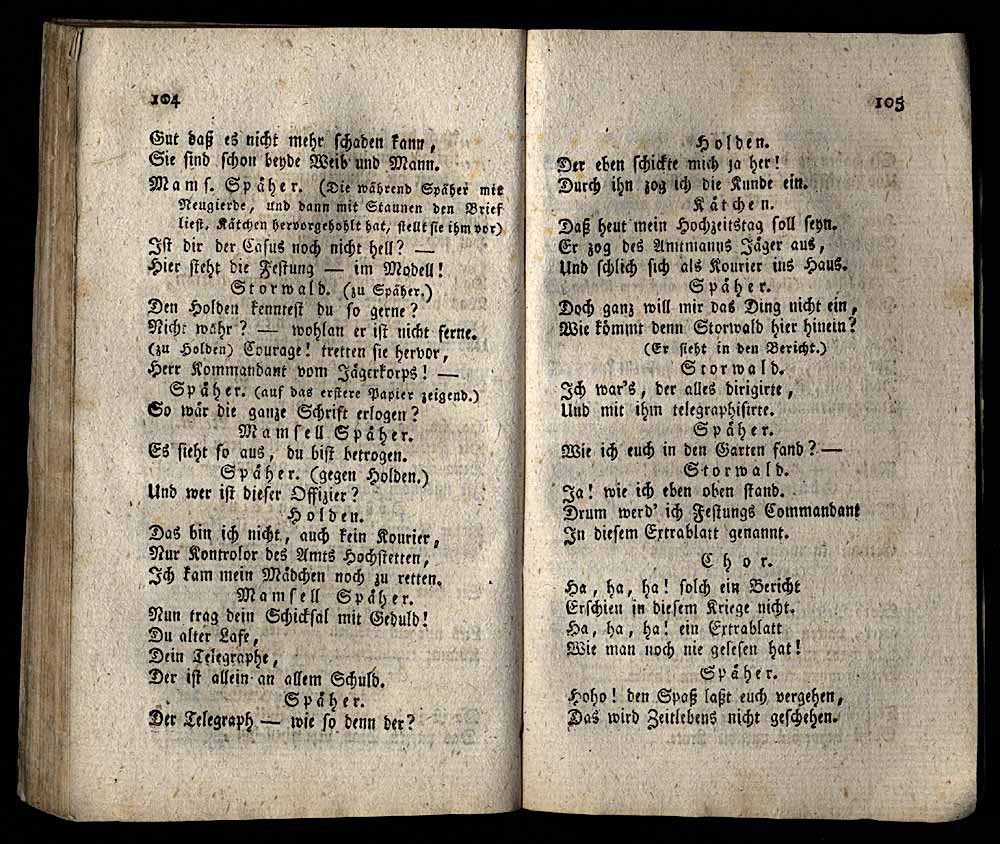 104
Gut daß es nicht mehr schaden kann,
Sie sind schon beyde Weib und Mann.
Mams. Später. (Die während Späher mit
Neugierde, und dann mit Staunen den Brief
liest, Kätchen hervorgehohlt hat, stellt sie ihm vor)
Ist dir der Casus noch nicht hell? —
Hier steht die Festung — im Modell!
Storwald. (zu Späher.)
Den Holden kenntest du so gerne?
Nicht wahr? — wohlan er ist nicht ferne.
(zu Holden) Courage! tretten sie hervor,
Herr Kommandant vom Jägerkorps! —
Späher. (auf das erstere Papier zeigend.)
So wär die ganze Schrift erlogen?
Mamsell Späher.
Es sieht so aus, du bist betrogen.
Späher. (gegen Holden.)
Und wer ist dieser Offizier?
Holden.
Das bin ich nicht, auch kein Kourier,
Nur Kontrolor des Amts Hochstetten,
Ich kam mein Mädchen noch zu retten.
Mamsell Späher.
Nun trag dein Schicksal mit Geduld!
Du alter Lafe,
Dein Telegraphe,
Der ist allein an allem Schuld.
Späher.
Der Telegraph — wie so denn der?
105
Holden.
Der eben schickte mich ja her!
Durch ihn zog ich die Kunde ein.
Kätchen.
Daß heut mein Hochzeitstag soll seyn.
Er zog des Amtmanns Jäger aus,
Und schlich sich als Kourier ins Haus.
Späher.
Doch ganz will mir das Ding nicht ein,
Wie kömmt denn Storwald hier hinein?
(Er sieht in den Bericht.)
Storwald.
Ich war's, der alles dirigirte,
Und mit ihm telegraphisirte.
Späher.
Wie ich euch in den Garten fand? —
Storwald.
Ja! wie ich eben oben stand.
Drum werd' ich Festungs Commandant
In diesem Extrablatt genannt.
Chor.
Ha, ha, ha! solch ein Bericht
Erschien in diesem Kriege nicht.
Ha, ha, ha! ein Extrablatt
Wie man noch nie gelesen hat!
Späher.
Hoho! den Spaß laßt euch vergehen,
Das wird Zeitlebens nicht geschehen.